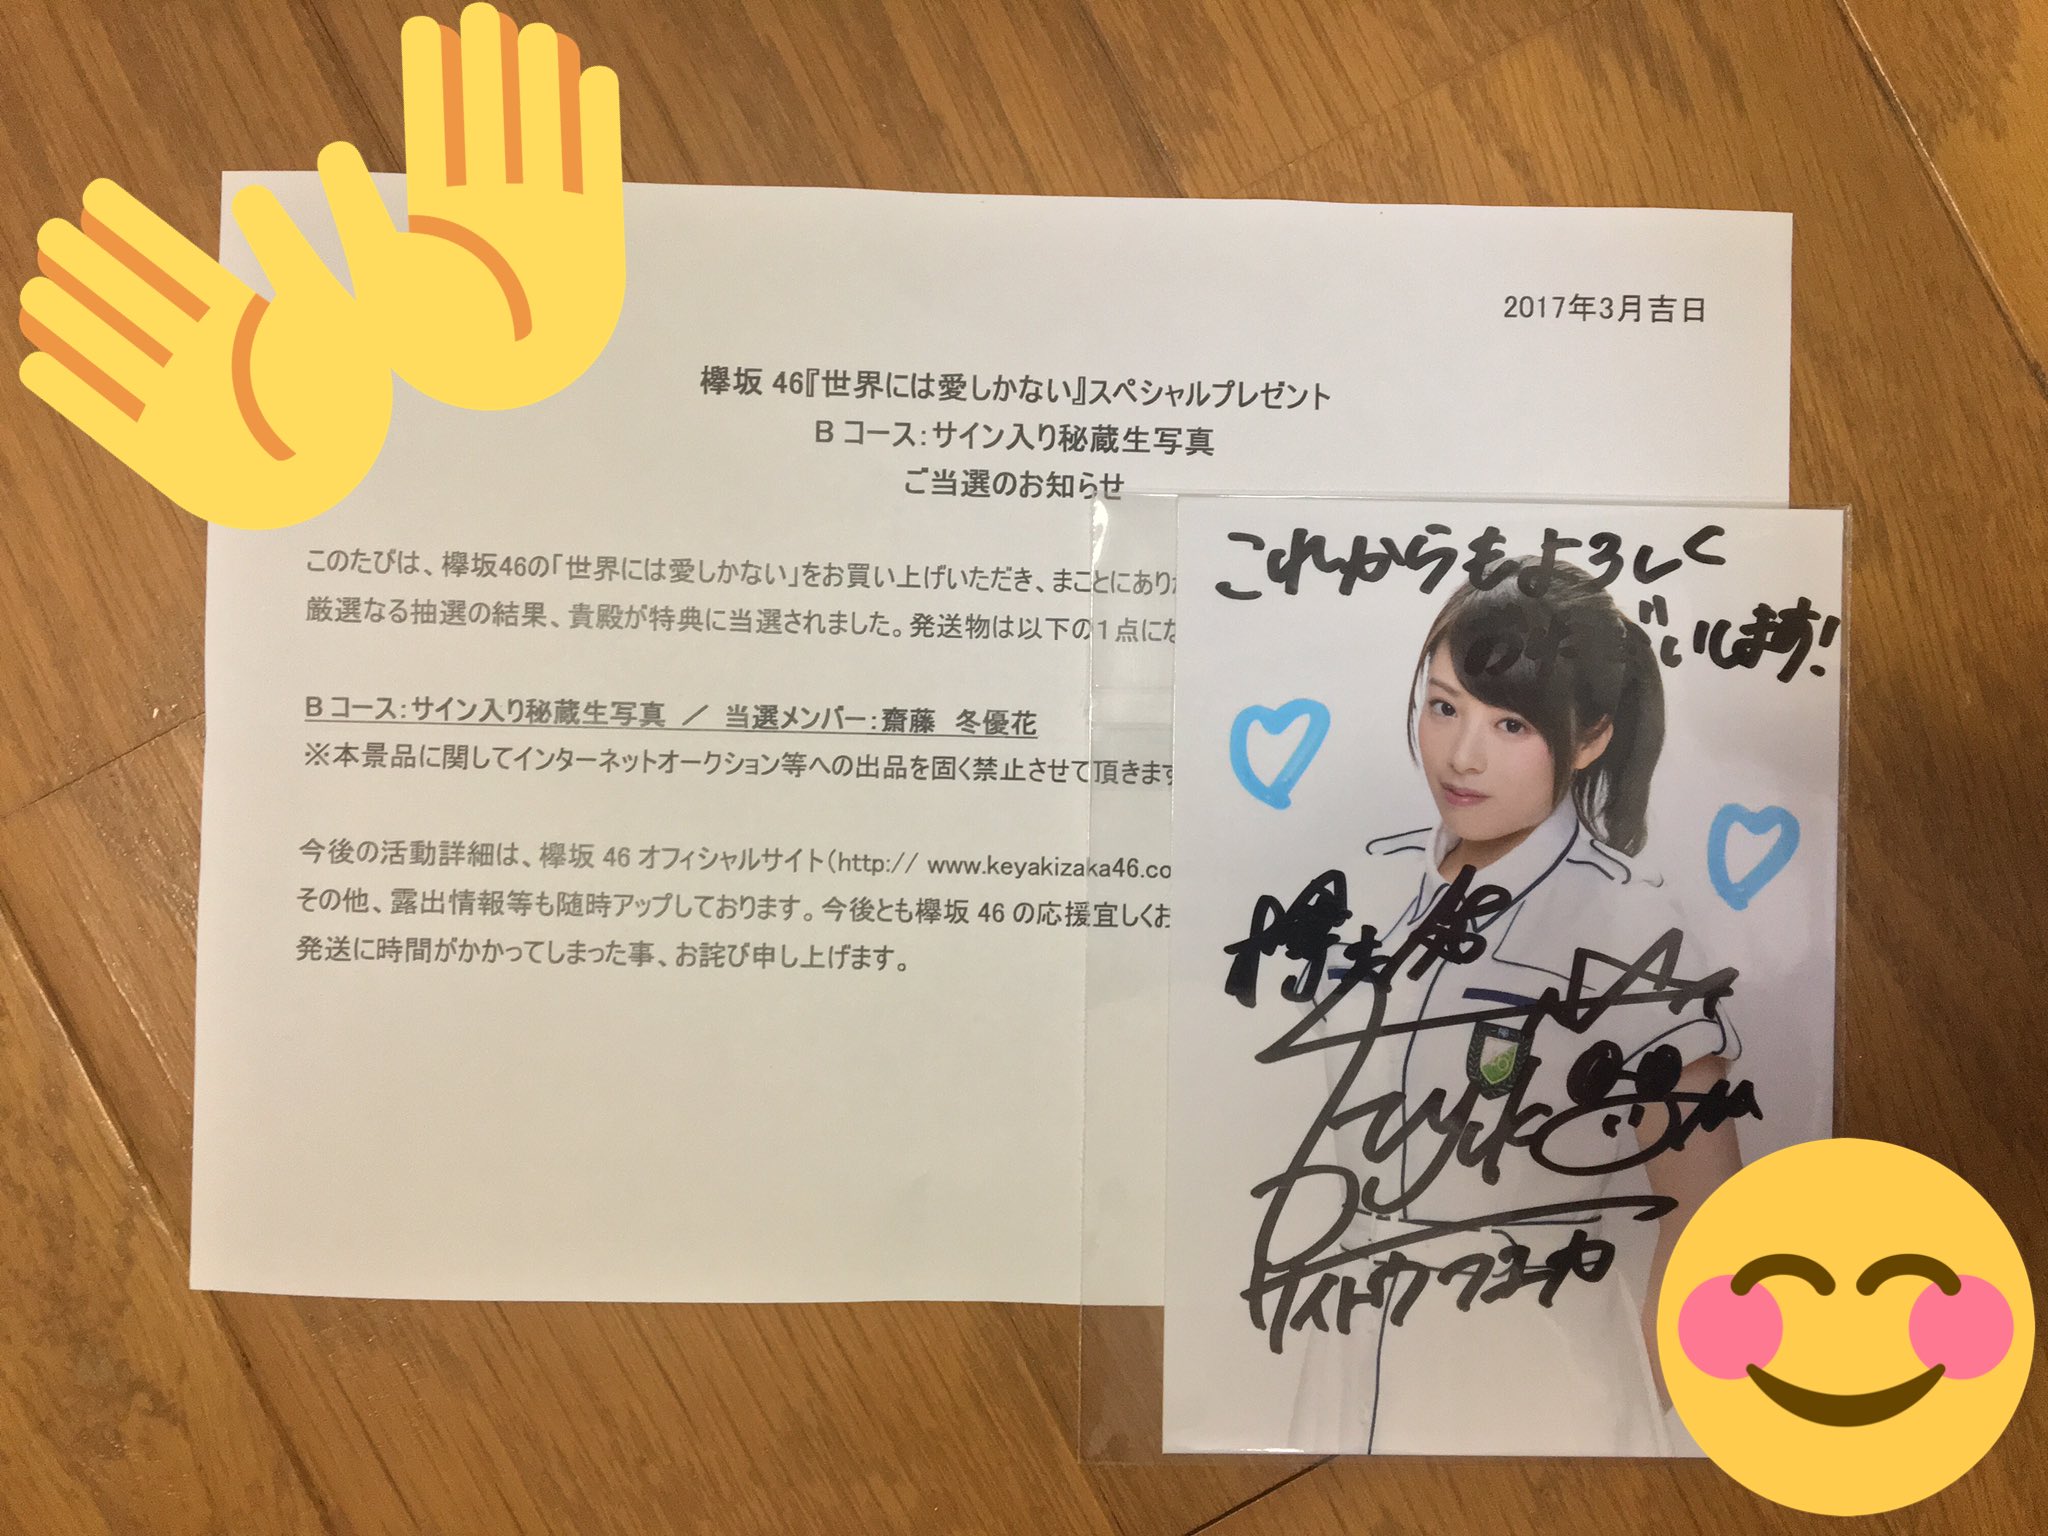 2017年3月吉日
欅坂 46『世界には愛しかない』スペシャルプレゼント
B コース：サイン入り秘蔵生写真
ご当選のお知らせ
このたびは、欅坂46の「世界には愛しかない」をお買い上げいただき、まことにあり
厳選なる抽選の結果、貴殿が特典に当選されました。発送物は以下の１点にな
B コース：サイン入り秘蔵生写真 ／ 当選メンバー：齋藤 冬優花
※本景品に関してインターネットオークション等への出品を固く禁止させて頂きます
今後の活動詳細は、欅坂 46 オフィシャルサイト（http:// www.keyakizaka46.co
その他、露出情報等も随時アップしております。今後とも欅坂 46 の応援宜しくお
発送に時間がかかってしまった事、お詫び申し上げます。
これからもよろしく
おねがいします!
サイトウフユカ